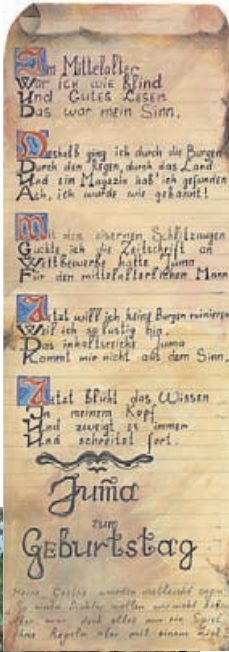 Im Mittelalter
War ich wie blind
Und Gutes Lesen
Das war mein Sinn.
Deshalb ging ich durch die Burgen
Durch den Regen, durch das Land
Und ein Magazin hab' ich gefunden
Ach, ich wurde wie gebannt!
Mit den eisernen Schlitzaugen
Guckte ich die Zeitschrift an
Wettbewerbe hatte Juma
Für den mittelalterlichen Mann
Jetzt will ich keine Burgen ruinieren
Weil ich so lustig bin.
Das inhaltsreiche Juma
Kommt mir nicht aus dem Sinn.
Jetzt blüht das Wissen
In meinem Kopf
Und zweigt es immer
Und schreitet fort.
Juma
zum
Geburtstag
Meine Gäste werden vielleicht sagen
So ein Dichter wollen wir nicht haben
Aber war doch alles nur ein Spiel
Ohne Regeln aber mit einem Ziel!